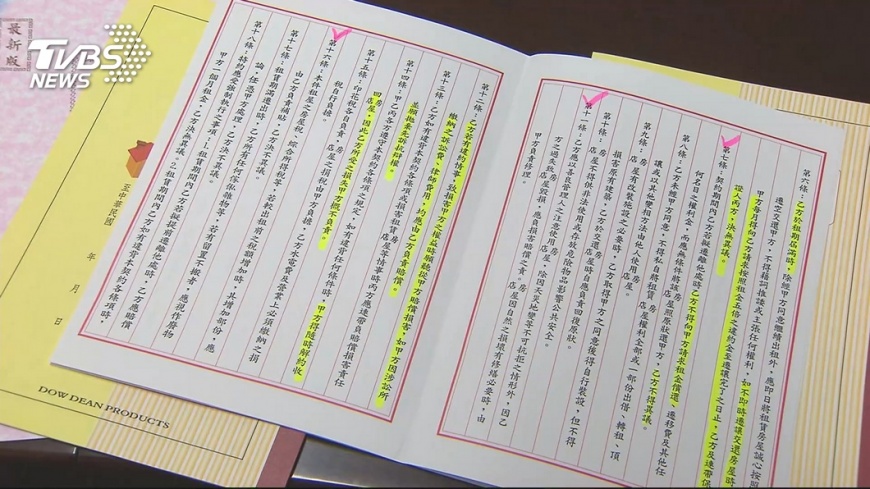 TVBS
NEWS
最新版
第六條：乙方於租期屆滿時，除經甲方同意繼續出租外，應即日將租賃房屋誠心按照
遷空交還甲方，不得藉詞推諉或主張任何權利，如不即時遷讓交還房屋時
甲方每月得向乙方請求按照租金五倍之違約金至遷讓完了之日止，乙方及連帶保
證人丙方，決無異議。
第七條：契約期間內乙方若擬遷離他處時乙方不得向甲方請求租金償還、遷移費及其他任
何名目之權利金，而應無條件將該房屋照原狀還甲方，乙方不得異議。
第八條：乙方未經甲方同意，不得私自將租賃房屋權利全部或一部份出借、轉租、頂
讓或以其他變相方法由他人使用房屋。
第九條：房屋有改裝施設之必要時，乙方取得甲方之同意後得自行裝設，但不得
損害原有建築，乙方於交還房屋時自應負責回復原狀。
第十條：房屋不得供非法使用或存放危險物品影響公共安全。
第十一條：乙方應以善良管理人之注意使用房屋，除因天災地變等不可抗拒之情形外，因乙
方之過失致房屋毀損，應負損害賠償之責。房屋因自然之損壞有修繕必要時，由
甲方負責修理。
第十二條：乙方若有違約情事，致損害甲方之權益時願聽從甲方賠償損害，如甲方因涉訟所
繳納之訴訟費、律師費用，均應由乙方負責賠償。
第十三條：乙方如有違背本契約各條項或損害租賃房屋等情事時丙方應連帶負賠償損害責任
並願拋棄先訴抗辯權。
第十四條：甲乙丙各方遵守本契約各條項之規定，如有違背任何條件時，甲方得隨時解約收
回房屋，因此乙方所受之損失甲方概不負責。
第十五條：印花稅各自負責，房屋之捐稅由甲方負擔，乙方水電費及營業上必須繳納之捐
稅自行負擔。
第十六條：本件租屋之房屋稅、綜合所得稅等，若較出租前之稅額增加時，其增加部份，應
由乙方負責補貼，乙方決不異議。
第十七條：租賃期滿遷出時，乙方所有任何傢俬雜物等，若有留置不搬者，應視作廢物
論，任憑甲方處理，乙方決不異議。
第十八條：特約應受強制執行之事項：1.租賃期間內乙方若擬提前遷離他處時，乙方應賠償
甲方一個月租金，乙方決無異議。2.租賃期間內乙方如有違背本契約各條項時，
至中華民國 年 月 日
DOW DEAN PRODUCTS